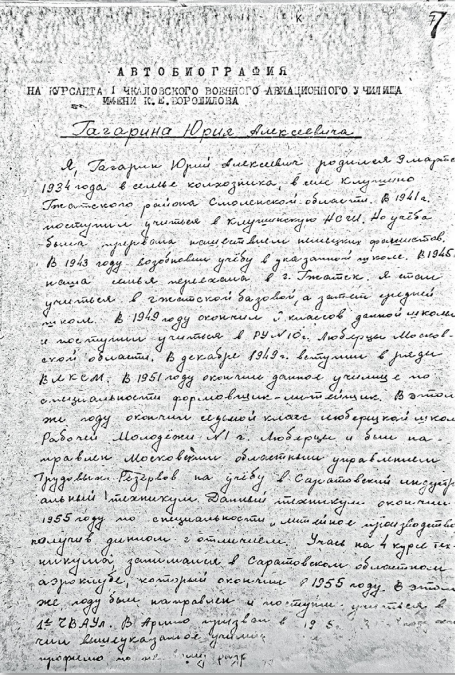 7
АВТОБИОГРАФИЯ
НА КУРСАНТА I ЧКАЛОВСКОГО ВОЕННОГО АВИАЦИОННОГО УЧИЛИЩА
ИМЕНИ К.Е.ВОРОШИЛОВА
Гагарина Юрия Алексеевича
Я, Гагарин Юрий Алексеевич родился 9 марта
1934 года в семье колхозника, в селе Клушино
Гжатского района Смоленской области. В 1941 г.
поступил учиться в Клушинскую НСШ. Но учёба
была прервана нашествием немецких фашистов.
В 1943 году возобновил учёбу в указанной школе. В 1945 г.
наша семья переехала в г. Гжатск. Я стал
учиться в Гжатской базовой, а затем средней
школе. В 1949 году окончил классов данной школы
и поступил учиться в РУ №10 г. Люберцы Москов-
ской области. В декабре 1949 г. вступил в ряды
ВЛКСМ. В 1951 году окончил данное училище по
специальности формовщик-литейщик. В этом
же году окончил седьмой класс люберецкой школы
Рабочей Молодёжи №1 г. Люберцы и был на-
правлен Московским областным управлением
Трудовых Резервов на учёбу в Саратовский индустри-
альный техникум. Данный техникум окончил
1955 году по специальности „литейное производство
получив диплом с отличием. Учась на 4 курсе тех-
никума занимался в Саратовском областном
аэроклубе, который окончил в 1955 году. В этом
же году был направлен и поступил учиться в
1е ЧВАУл. В Армию призван в
чил вышеуказанное училище